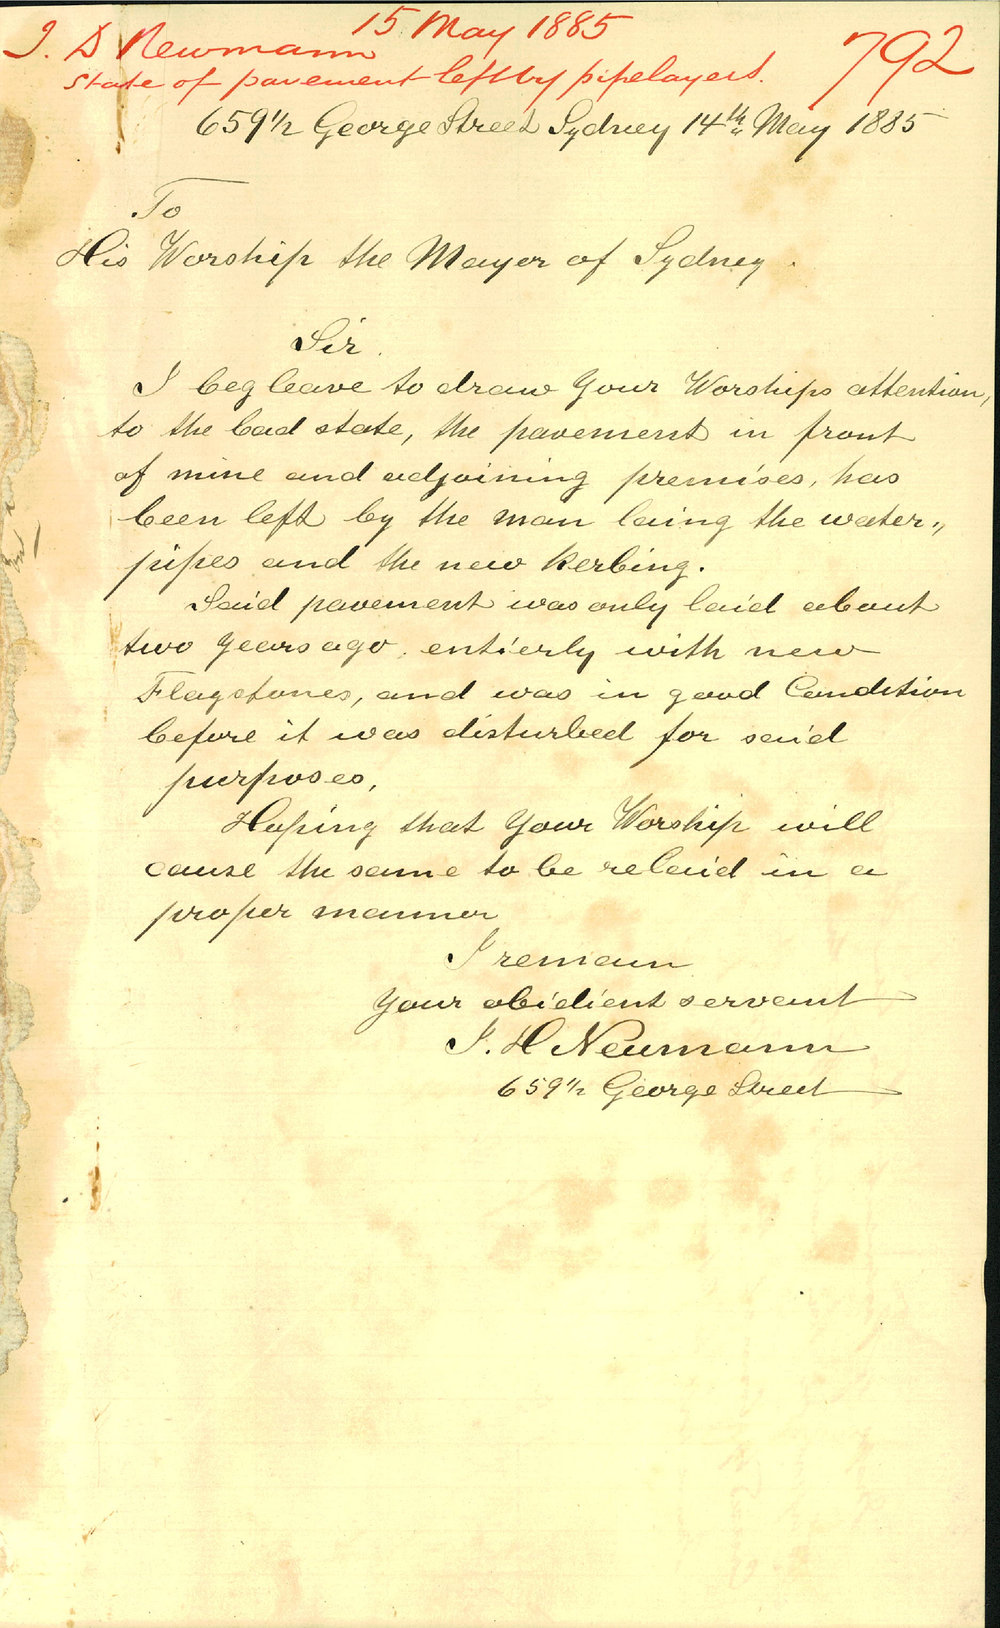 15 May 1885
J. D Newmann 792
State of pavement left by pipelayers.
659½ George Street Sydney 14th May 1885
To
His Worship the Mayor of Sydney.
Sir.
I beg leave to draw Your Worships attention,
to the bad state, the pavement in front
of mine and adjoining premises, has
been left by the man laing the water„
pipes and the new Kerbing.
Said pavement was only laid about
two years ago, entierly with new
Flagstones, and was in good Condition
before it was disturbed for said
purposes,
Hoping that Your Worship will
cause the same to be relaid in a
proper manner
I remain
Your obidient servant
J. H Neumann
659½ George Street